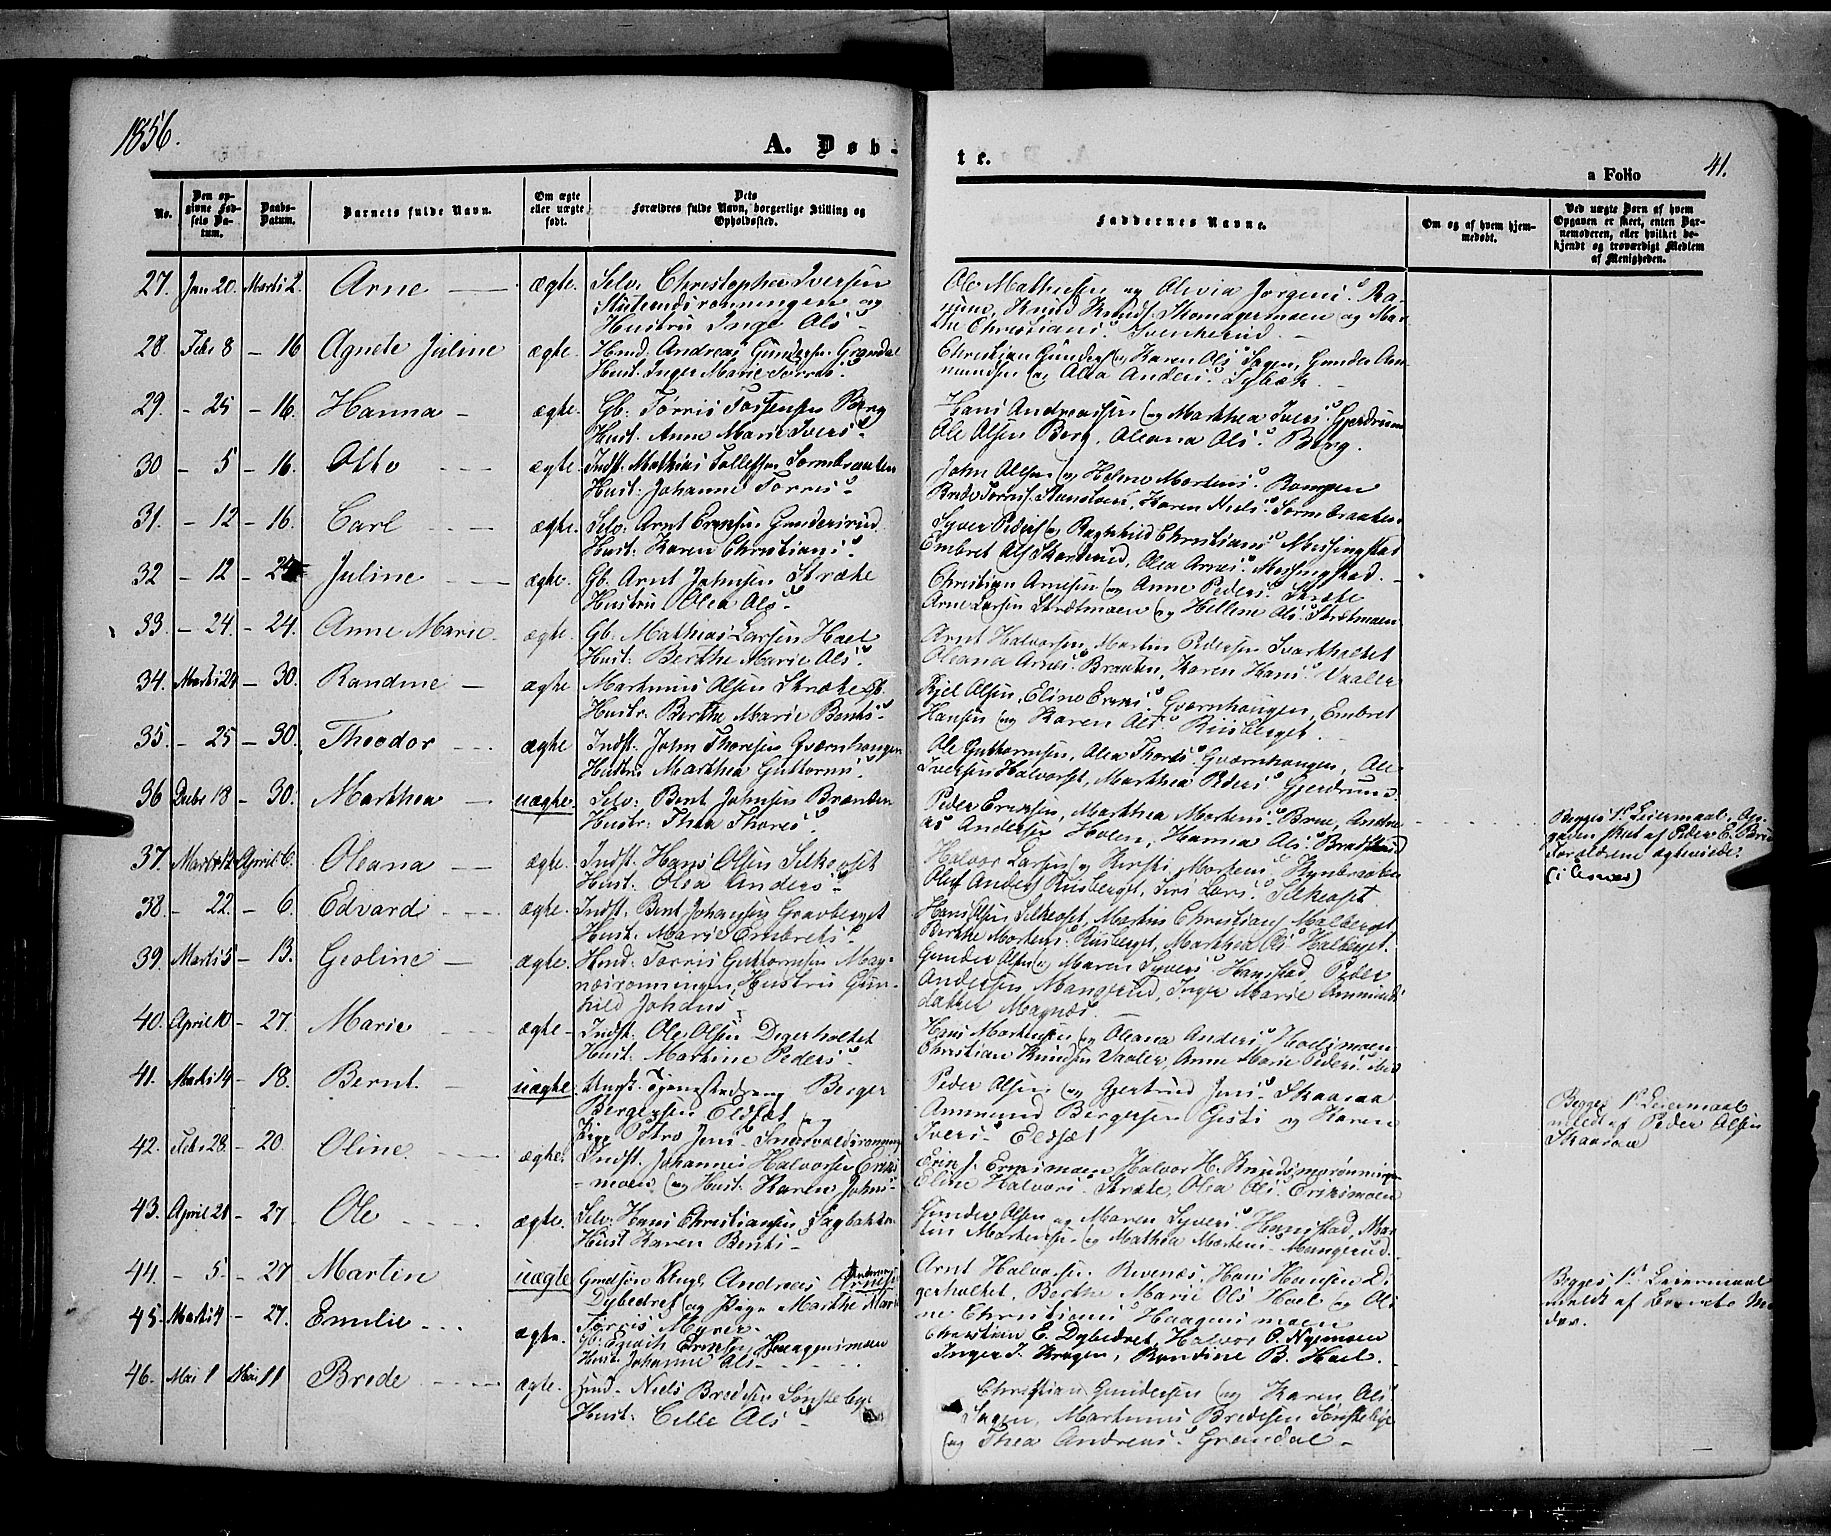 1856.
A. Døb-
te.
a Folio
41.
No.
Den op-
givne Fød-
sels Da-
tum.
Daabs-
Datum.
Barnets fulde Navn.
Om ægte
eller uægte
født.
Dets
Forældres fulde Navn, borgerlige Stilling og
Opholdssted.
Faddernes Navne.
Om og af hvem hjem-
medøbt.
Ved uægte Børn af hvem
Opgaven er skeet, enten Bar-
nemoderen, eller hvilket be-
kjendt og troværdigt Medlem
af Menigheden.
27. Jan 20. Marts 2. Arne ægte. Selv. Christopher Iversen
og
Hustru Inge Ols.
Ole Mathisen og Olivia Jørgens.
Knud Knuds. Skomagermoen og Mar-
the Christians Svenkerud.
28. Febr 8 - 16 Agnete Juline ægte. Hmd. Andreas Gundersen Grøndal
Hust. Inger Marie Torres.
Christian Gunders. og Karen Ols. Sagen, Gunder Am-
mundsen og Olea Anders. Sybæk.
29. - 25 - 16. Hanna - ægte. Gb. Tørris Tostensen Berg
Hust. Anne Marie Ivers.
Hans Andreassen og Marthea Ivers. Gjerdrum
Ole Olsen Berg, Oleana Ols. Berg.
30 - 5 - 16. Otto ægte. Indst. Mathias Tollefsen Sormbraaten
Hust. Johanne Torres.
John Olsen og Helene Mortens.
Brede Torres. Karen Niels. Sormbraaten
31. - 12 - 16. Carl ægte. Selv. Arnt Ernsten Gundersrud.
Hust. Karen Christians.
Syver Peders. og Ragnhild Christians. Messingstad
Embret Ols Skarderud, Olea Arnes. Messingstad.
32 - 12 - 24 Juline ægte. Gb. Arnt Johnsen Stræte
Hustru Olea Ols.
Christian Arnesen og Anne Peders. Stræte
Arne Larsen Strætmoen og Hellene Ols. Strætmoen
33. - 24. - 24. Anne Marie. ægte. Gb. Mathias Larsen Hoel
Hust. Berthe Marie Ols.
Arnt Halvorsen, Martin Pedersen Svartholtet
Oleana Arnes. Braaten, Karen Hans. Vaaler
34. Marts 24 - 30. Randine - ægte Martinus Olsen Stræte Gb.
Hustr. Berthe Marie Bents.
Kjel Olsen, Eline Erns. Qværnhaugen, Embret
Hansen og Karen Ols. Riisberget.
35. - 25 - 30. Theodor ægte Indst. John Thoresen Qværnhaugen
Hustru Marthea Guttorms.
Ole Guttormsen, Olea Thores. Qværnhaugen, Ole
Iversen Halvorset, Marthea Peders. Gjerdrum.
36 Decbr 18 - 30. Marthea - uægte. Selv. Bent Johnsen Brænden
Hustr. Thea Thores.
Peder Erensen, Marthea Mortens. Brue, Andre-
as Andersen Holen, Hanna Ols.
Begges 1ste Leiermaal, Op-
gaven skeet af Peder E. Brue
Forældrene ægteviede.
37. Marts 12 April 6. Oleana ægte. Indst. Hans Olsen Silkeset
Hust. Olea Anders.
Halvor Larsen og Kirsti Mortens.
Oluf Anders Riisberget, Siri Lars. Silkeset.
38. - 22. - 6. Edvard ægte. Indst. Bent Johansen Gravberget
Hust. Marie Embrets.
Hans Olsen Silkeset, Martin Christians. Malberget
Berthe Mortens. Riisberget, Marthea Ols. Halberget.
39. Marts 5 - 13. Geoline - ægte. Hmd. Torris Guttormsen Mag-
næsrønningen, Hustru Gun-
hild Johans.
Gunder Olsen, Maren Syvers. Hanstad, Peder
Andersen Mangerud, Inger Marie Ammunds-
datter Magnæs.
40. April 10 - 27. Marie ægte - Indst. Ole Olsen Digerholtet
Hust. Martine Peders.
Hans Mortensen og Oleana Anders. Hoelsmoen
Christian Knudsen Vaaler, Anne Marie Peders.
41. Marts 14 - 18. Bernt. - uægte. Ungk. Tjenestedreng Berger
Bergersen Eldset og
Pige Petro Jens. Snesvoldsrønning
Peder Olsen og Gjertrud Jens. Skaaraa
Ammund Bergersen Gjesti og Karen
Ivers. Eldset
Begges 1ste Leiermaal
meldt af Peder Olsen
Skaaraa
42. Febr 28. - 20. Oline ægte. Indst. Johannes Halvorsen Eriks-
moen og Hust. Karen Johns.
Eren J. Ernsmoen Halvor H. Knudsmorønningen
Eline Halvors. Stræte, Olea Ols. Eriksmoen
43. April 21 - 27. Ole ægte. Selv. Hans Christiansen Sagbakken
Hust Karen Bents.
Gunder Olsen og Maren Syvers. Hanstad, Mar-
tin Mortensen og Mathea Mortens. Mangerud.
44. - 5. - 27 Martin uægte Gmdsøn Ungk. Andreas
Dybedref og Pige Marthe Marie
Torris Myrer.
Arnt Halvorsen Revenæs, Hans Hansen Di-
gerholtet, Berthe Marie Ols. Hoel og Oli-
ne Christians. Haagensmoen
Begges 1ste Leiermaal
meldt af Barnets Mo-
der.
45. Marts 4 - 27. Emilie ægte. Haagensmoen
Hust. Johanne Ols.
Christian E. Dybedret, Halvor O. Nymoen
Inger J. Krogen, Randine B. Hoel.
46. Mai 1 Mai 11 Brede ægte. Hmd. Niels Bredesen Sønsteby
Hust. Cille Ols.
Christian Gundersen og Karen Ols.
Sagen, Martinus Bredesen Sønsteby
og Thea Andreas. Grøndal.